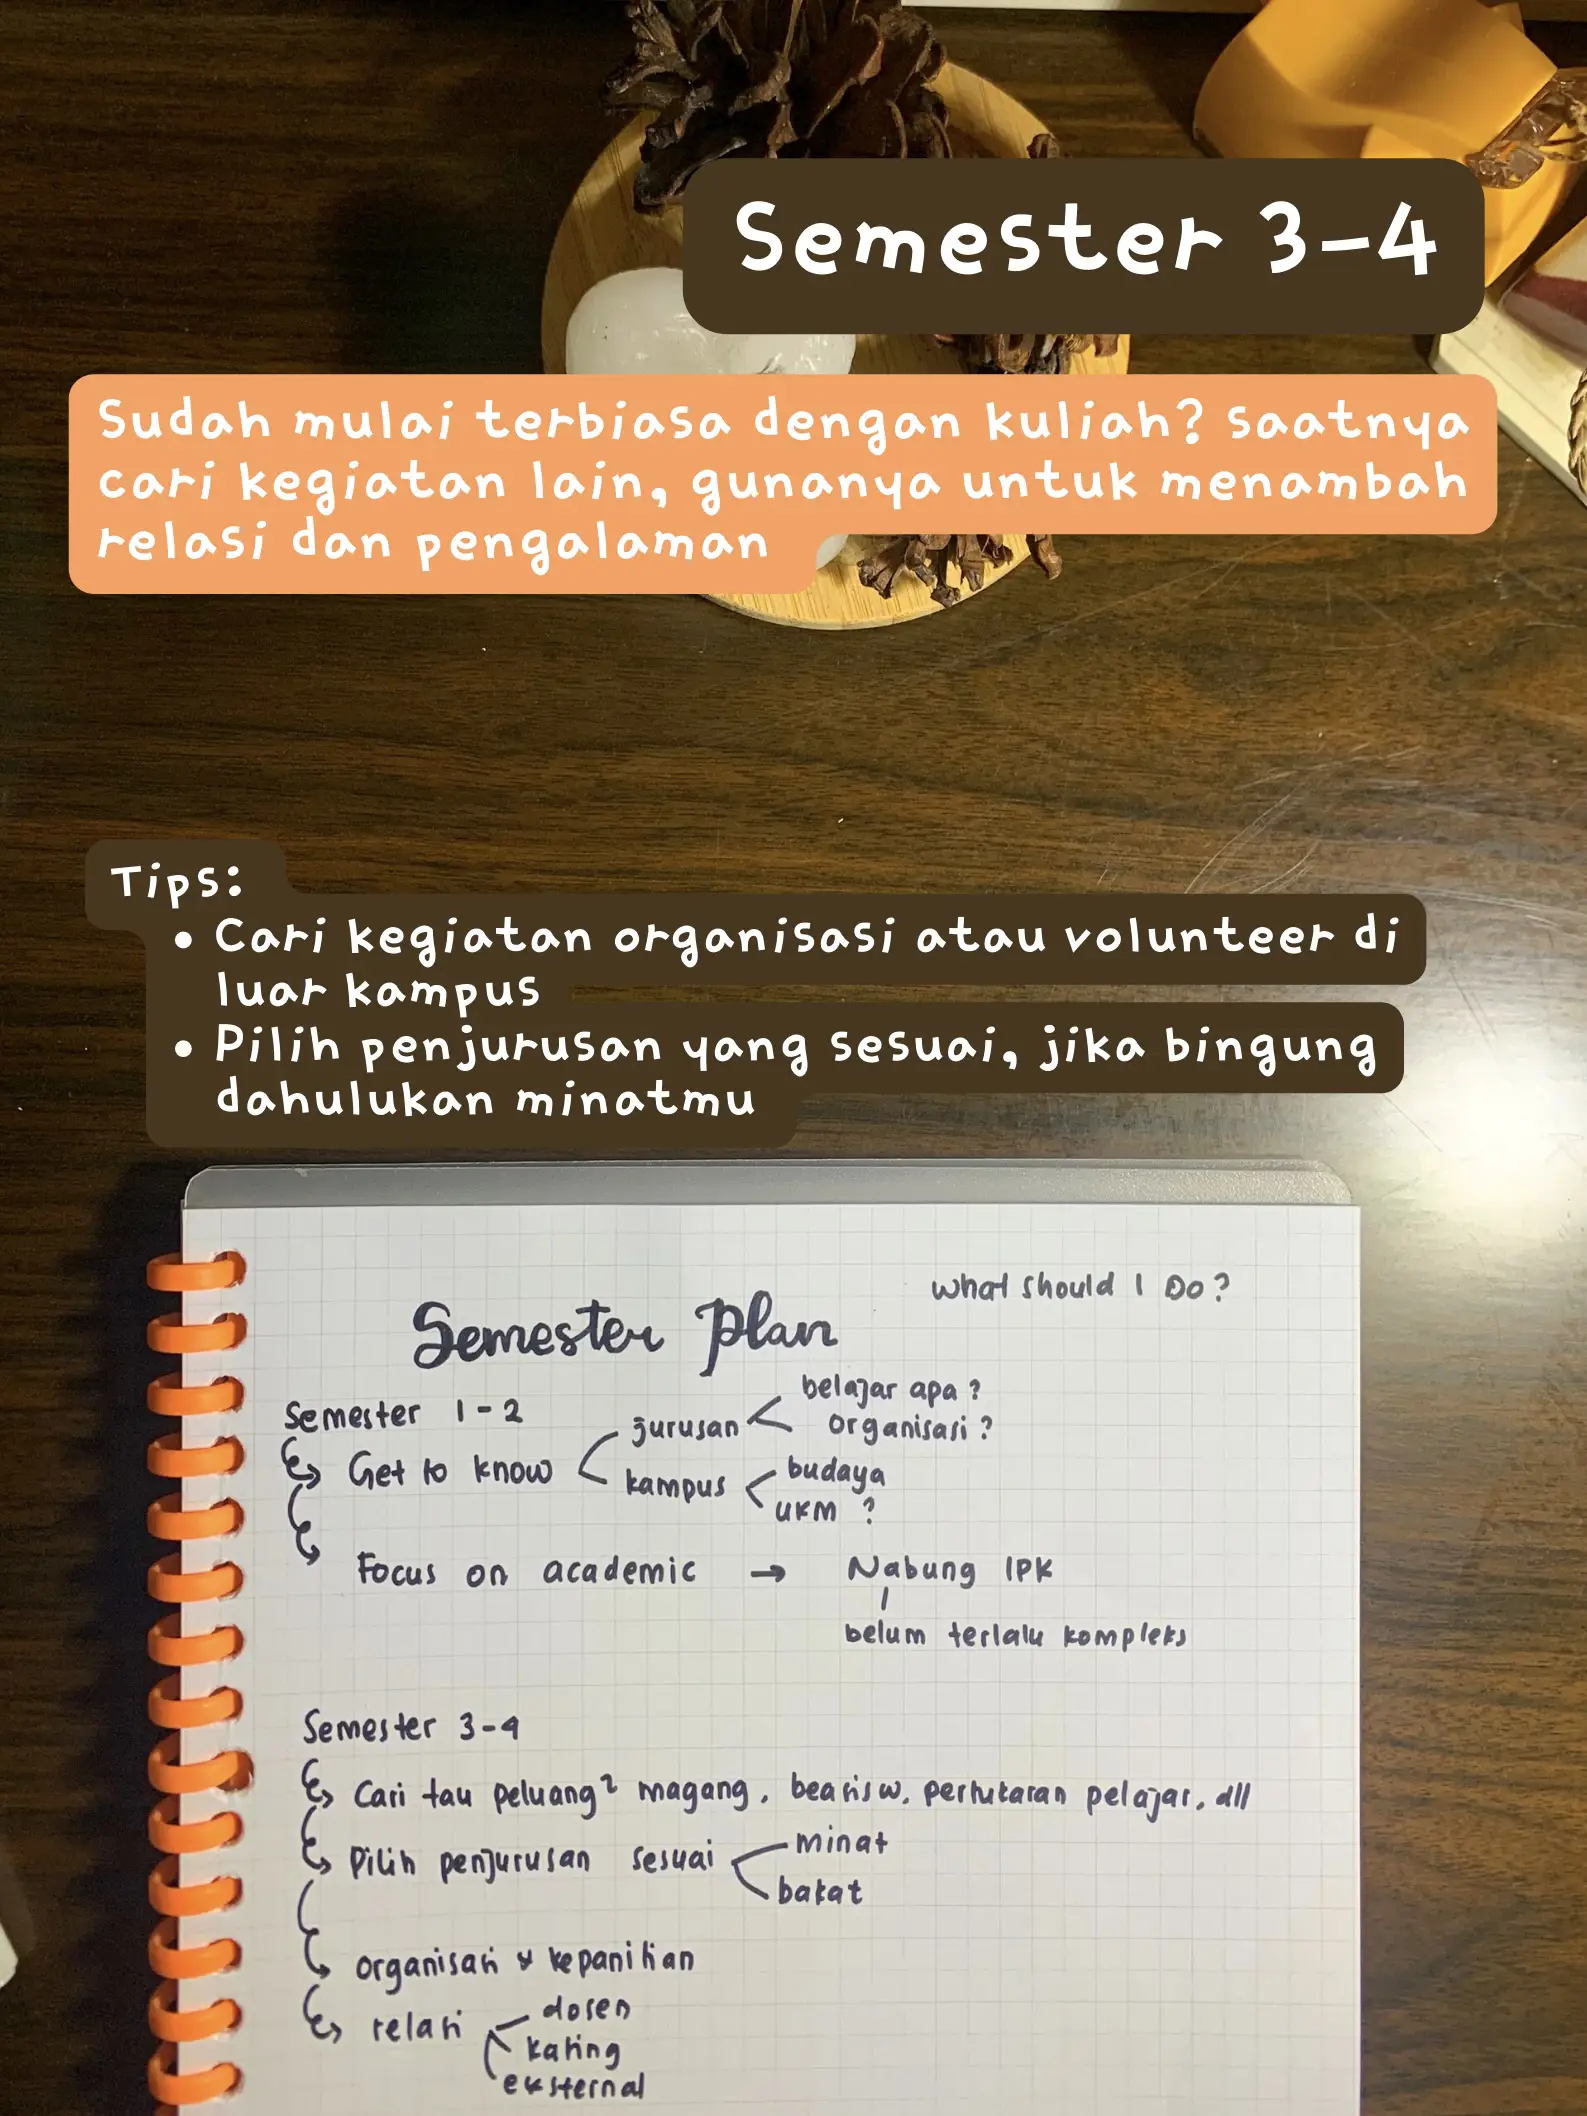 Semester 3-4
Sudah mulai terbiasa dengan kuliah? saatnya
cari kegiatan lain, gunanya untuk menambah
relasi dan pengalaman
Tips:
• Cari kegiatan organisasi atau volunteer di
luar kampus
• Pilih penjurusan yang sesuai, jika bingung
dahulukan minatmu
What should I Do?
Semester Plan
Semester 1-2
Get to know
jurusan
belajar apa?
organisasi?
kampus
budaya
UKM ?
Focus on academic → Nabung IPK
belum terlalu kompleks
Semester 3-4
Cari tau peluang² magang, beasisw, pertukaran pelajar, dll
Pilih penjurusan sesuai
minat
bakat
organisasi & kepanitian
relasi
dosen
kating
eksternal